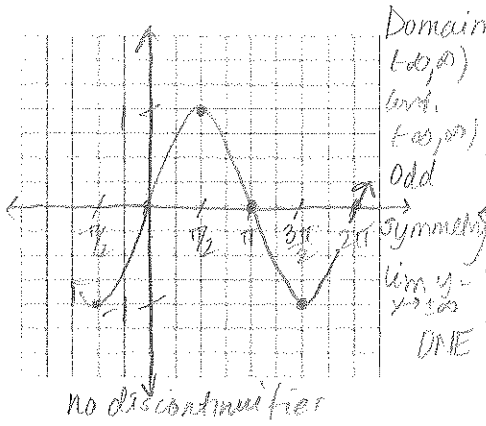 Domain
(-∞,∞)
cont.
(-∞,∞)
Odd
symmetry
lim y =
x→±∞
DNE
1
-π/2
π/2
π
3π/2
2π
-1
no discontinuities